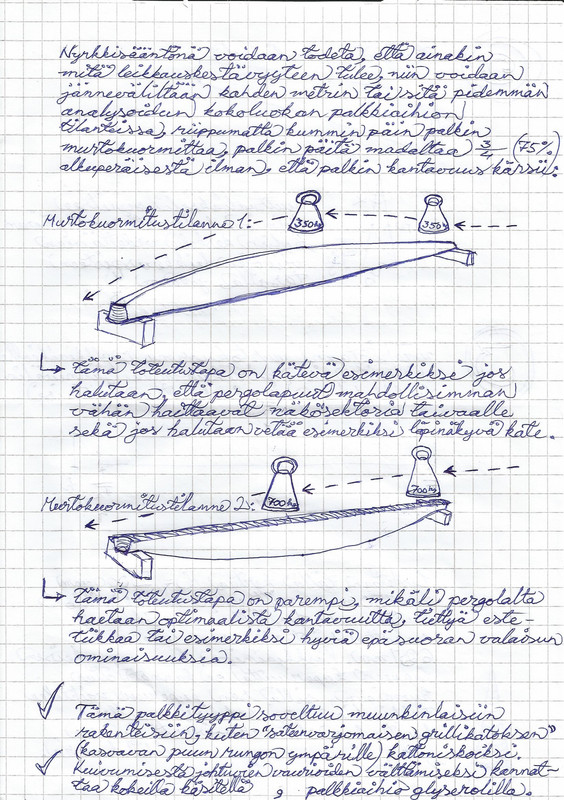 Nyrkkisääntönä voidaan todeta, että ainakin
mitä leikkauskestävyyteen tulee, niin voidaan
jännevälittään kahden metrin tai sitä pidemmän
analysoidun kokoluokan palkkiaihion
tilanteissa, riippumatta kummin päin palkin
murtokuormittaa, palkin päitä madaltaa 3/4 (75%)
alkuperäisestä ilman, että palkin kantavuus kärsii:
Murtokuormitustilanne 1:
350kg
350kg
tämä toteutustapa on kätevä esimerkiksi jos
halutaan, että pergolapuut mahdollisimman
vähän haittaavat näkösektoria taivaalle
sekä jos halutaan vetää esimerkiksi läpinäkyvä kate.
Murtokuormitustilanne 2:
700kg
700kg
tämä toteutustapa on parempi, mikäli pergolalta
haetaan optimaalista kantavuutta, tiettyä este-
tiikkaa tai esimerkiksi hyviä epäsuoran valaisun
ominaisuuksia.
Tämä palkkityyppi soveltuu muunkinlaisiin
rakenteisiin, kuten "sateenvarjomaisen grillikatoksen"
(kasvavan puun rungon ympärille) kattoniskoiksi.
Kuivumisesta johtuvien vaurioiden välttämiseksi kannat-
taa kokeilla käsitellä , palkkiaihio glyserolilla.